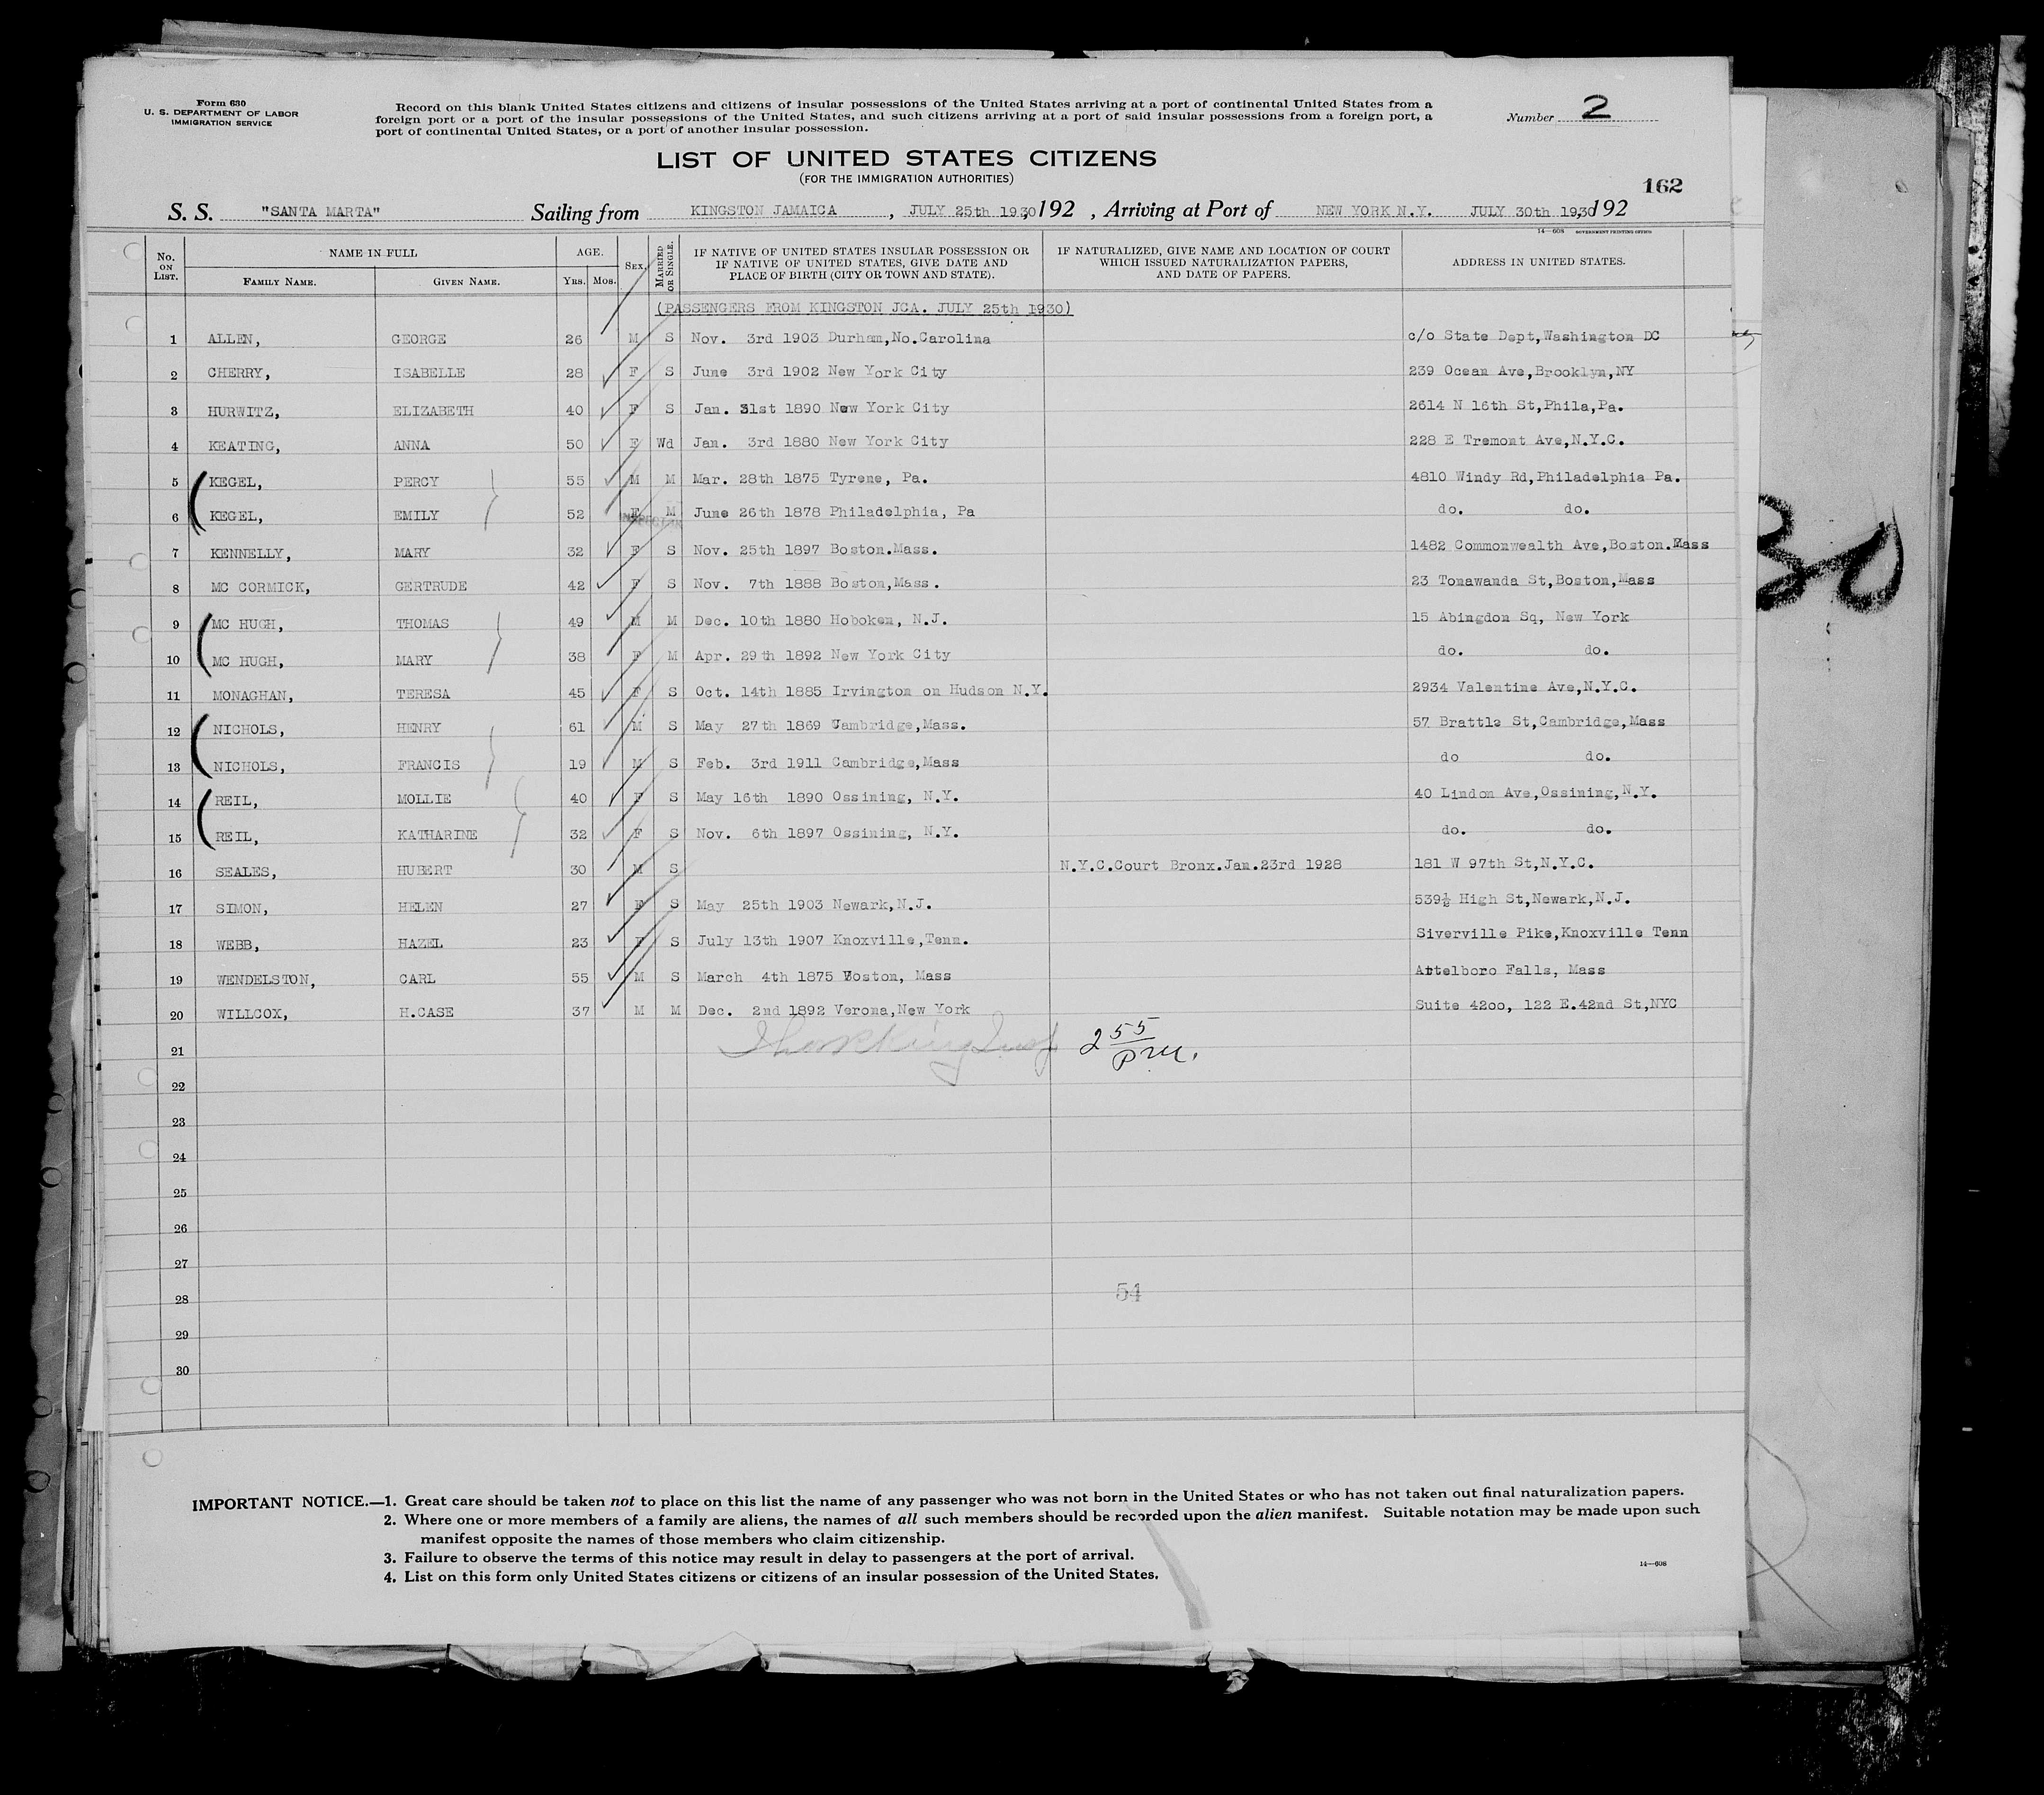 Form 630
U. S. DEPARTMENT OF LABOR
IMMIGRATION SERVICE
Record on this blank United States citizens and citizens of insular possessions of the United States arriving at a port of continental United States from a
foreign port or a port of the insular possessions of the United States, and such citizens arriving at a port of said insular possessions from a foreign port, a
port of continental United States, or a port of another insular possession.
Number 2
LIST OF UNITED STATES CITIZENS
(FOR THE IMMIGRATION AUTHORITIES)
162
S. S. "SANTA MARTA" Sailing from KINGSTON JAMAICA, JULY 25th 1930, 192 , Arriving at Port of NEW YORK N.Y. JULY 30th 1930, 192
14—608 GOVERNMENT PRINTING OFFICE
No. ON LIST. NAME IN FULL AGE. SEX. MARRIED OR SINGLE. IF NATIVE OF UNITED STATES INSULAR POSSESSION OR IF NATIVE OF UNITED STATES, GIVE DATE AND PLACE OF BIRTH (CITY OR TOWN AND STATE). IF NATURALIZED, GIVE NAME AND LOCATION OF COURT WHICH ISSUED NATURALIZATION PAPERS, AND DATE OF PAPERS. ADDRESS IN UNITED STATES.
FAMILY NAME. GIVEN NAME. YRS. MOS.
(PASSENGERS FROM KINGSTON JCA. JULY 25th 1930)
1 ALLEN, GEORGE 26 M S Nov. 3rd 1903 Durham,No.Carolina c/o State Dept,Washington DC
2 CHERRY, ISABELLE 28 F S June 3rd 1902 New York City 239 Ocean Ave,Brooklyn,NY
3 HURWITZ, ELIZABETH 40 F S Jan. 31st 1890 New York City 2614 N 16th St,Phila,Pa.
4 KEATING, ANNA 50 F Wd Jan. 3rd 1880 New York City 228 E Tremont Ave,N.Y.C.
5 KEGEL, PERCY 55 M M Mar. 28th 1875 Tyrene, Pa. 4810 Windy Rd,Philadelphia Pa.
6 KEGEL, EMILY 52 F M June 26th 1878 Philadelphia, Pa do. do.
7 KENNELLY, MARY 32 F S Nov. 25th 1897 Boston.Mass. 1482 Commonwealth Ave,Boston.Mass
8 MC CORMICK, GERTRUDE 42 F S Nov. 7th 1888 Boston,Mass. 23 Tonawanda St,Boston,Mass
9 MC HUGH, THOMAS 49 M M Dec. 10th 1880 Hoboken, N.J. 15 Abingdon Sq, New York
10 MC HUGH, MARY 38 F M Apr. 29th 1892 New York City do. do.
11 MONAGHAN, TERESA 45 F S Oct. 14th 1885 Irvington on Hudson N.Y. 2934 Valentine Ave,N.Y.C.
12 NICHOLS, HENRY 61 M S May 27th 1869 Cambridge,Mass. 57 Brattle St,Cambridge,Mass
13 NICHOLS, FRANCIS 19 M S Feb. 3rd 1911 Cambridge,Mass do do.
14 REIL, MOLLIE 40 F S May 16th 1890 Ossining, N.Y. 40 Lindon Ave,Ossining,N.Y.
15 REIL, KATHARINE 32 F S Nov. 6th 1897 Ossining, N.Y. do. do.
16 SEALES, HUBERT 30 M S N.Y.C.Court Bronx.Jan.23rd 1928 181 W 97th St,N.Y.C.
17 SIMON, HELEN 27 F S May 25th 1903 Newark,N.J. 539½ High St,Newark,N.J.
18 WEBB, HAZEL 23 F S July 13th 1907 Knoxville,Tenn. Siverville Pike,Knoxville Tenn
19 WENDELSTON, CARL 55 M S March 4th 1875 Boston, Mass Attelboro Falls, Mass
20 WILLCOX, H.CASE 37 M M Dec. 2nd 1892 Verona,New York Suite 4200, 122 E.42nd St,NYC
21 2 55 PM.
22
23
24
25
26
27
28 54
29
30
IMPORTANT NOTICE.—1. Great care should be taken not to place on this list the name of any passenger who was not born in the United States or who has not taken out final naturalization papers.
2. Where one or more members of a family are aliens, the names of all such members should be recorded upon the alien manifest. Suitable notation may be made upon such
manifest opposite the names of those members who claim citizenship.
3. Failure to observe the terms of this notice may result in delay to passengers at the port of arrival.
4. List on this form only United States citizens or citizens of an insular possession of the United States.
14—608